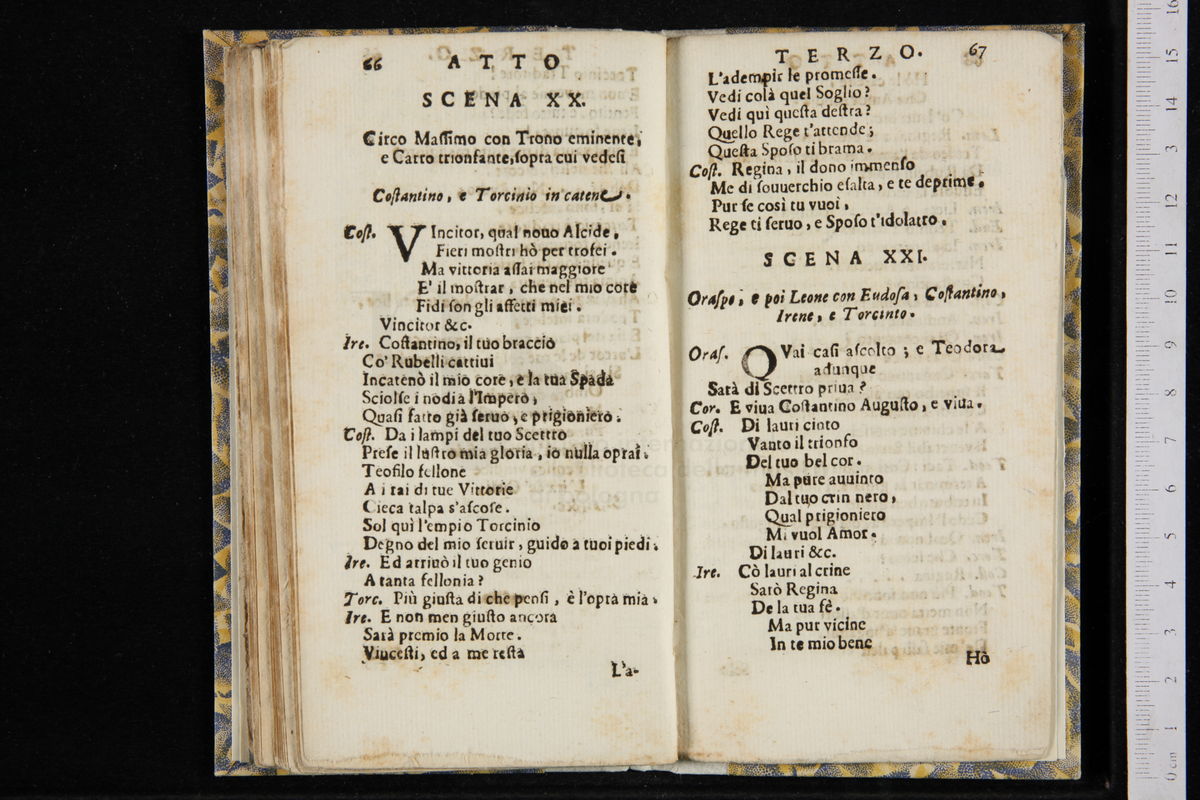 66 ATTO
SCENA XX.
Circo Maſſimo con Trono eminente,
e Carro trionfante, ſopra cui vedeſi
Coſtantino, e Torcinio in catene.
Coſt. VIncitor, qual nouo Alcide,
Fieri moſtri hò per trofei.
Ma vittoria aſſai maggiore
E' il moſtrar, che nel mio core
Fidi ſon gli affetti miei.
Vincitor &c.
Ire. Coſtantino, il tuo braccio
Co' Rubelli cattiui
Incatenò il mio core, e la tua Spada
Sciolſe i nodi à l'Impero,
Quaſi fatto già ſeruo, e prigioniero.
Coſt. Da i lampi del tuo Scettro
Preſe il luſtro mia gloria, io nulla oprai.
Teofilo fellone
A i rai di tue Vittorie
Cieca talpa s'aſcoſe.
Sol quì l'empio Torcinio
Degno del mio ſeruir, guido a tuoi piedi.
Ire. Ed arriuò il tuo genio
A tanta fellonia?
Torc. Più giuſta di che penſi, è l'opra mia.
Ire. E non men giuſto ancora
Sarà premio la Morte.
Vinceſti, ed a me reſta
L'a-
TERZO. 67
L'adempir le promeſſe.
Vedi colà quel Soglio?
Vedi quì queſta deſtra?
Quello Rege t'attende;
Queſta Spoſo ti brama.
Coſt. Regina, il dono immenſo
Me di ſouuerchio eſalta, e te deprime.
Pur ſe così tu vuoi,
Rege ti ſeruo, e Spoſo t'idolatro.
SCENA XXI.
Oraſpe, e poi Leone con Eudoſa, Coſtantino,
Irene, e Torcinto.
Oraſ. QVai caſi aſcolto; e Teodora
adunque
Sarà di Scettro priua?
Cor. E viua Coſtantino Auguſto, e viua.
Coſt. Di lauri cinto
Vanto il trionfo
Del tuo bel cor.
Ma pure auuinto
Dal tuo crin nero,
Qual prigioniero
Mi vuol Amor.
Di lauri &c.
Ire. Cò lauri al crine
Sarò Regina
De la tua fè.
Ma pur vicine
In te mio bene
Hò